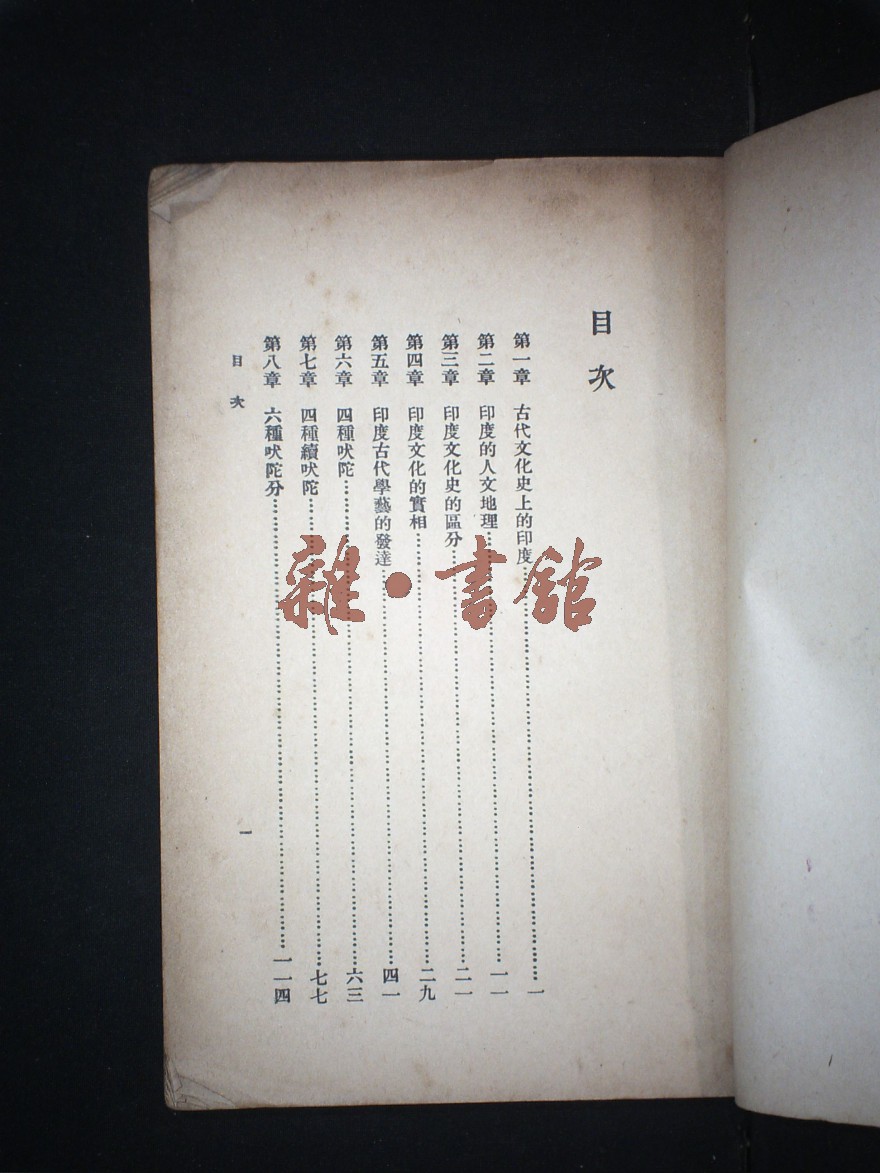 目次
第一章 古代文化史上的印度……一
第二章 印度的人文地理……一一
第三章 印度文化史的區分……二一
第四章 印度文化的實相……二九
第五章 印度古代學藝的發達……四一
第六章 四種吠陀……六三
第七章 四種續吠陀……七七
第八章 六種吠陀分……一一四
目次
一
雜·書館